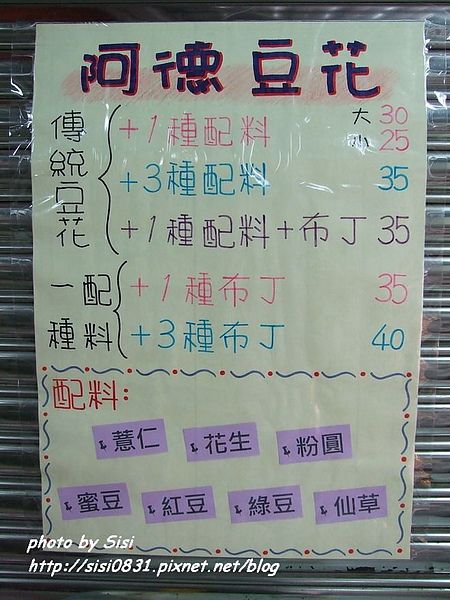 阿德豆花
傳統豆花
+1種配料 大30
小25
+3種配料 35
+1種配料+布丁 35
一種配料
+1種布丁 35
+3種布丁 40
配料:
薏仁 花生 粉圓
蜜豆 紅豆 綠豆 仙草
photo by Sisi
http://sisi0831.pixnet.net/blog